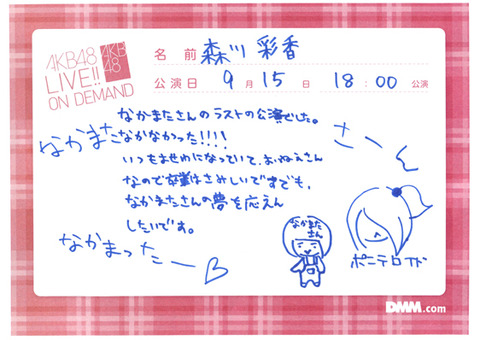 AKB48
LIVE!!
ON DEMAND
AKB
48
名前 森川 彩香
公演日 9月15日 18:00 公演
なかまたさんのラストの公演でした。
なかまたなかなかった!!!!
さーん
いつもませわになっていて、おねえさん
なので卒業はさみしいですでも、
なかまたさんの夢を応えん
したいです。
なかまったーー
なかまた
さん
ポニテロング
DMM.com